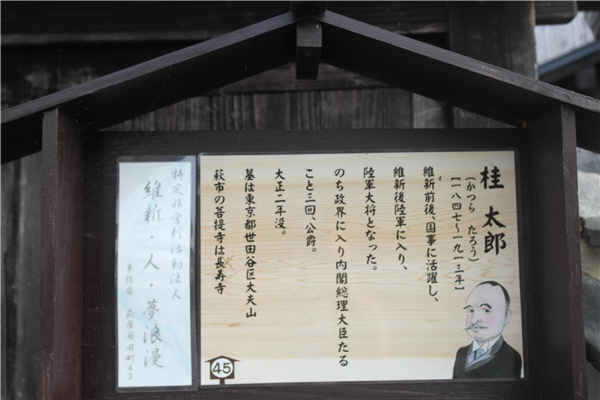 桂太郎
(かつら たろう)
[一八四七~一九一三年]
維新前後、国事に活躍し、
維新後陸軍に入り、
陸軍大将となった。
のち政界に入り内閣総理大臣たる
こと三回、公爵。
大正二年没。
墓は東京都世田谷区大夫山
萩市の菩提寺は長寿寺
45
特定非営利活動法人
維新・人・夢浪漫
事務局 萩市西田町43